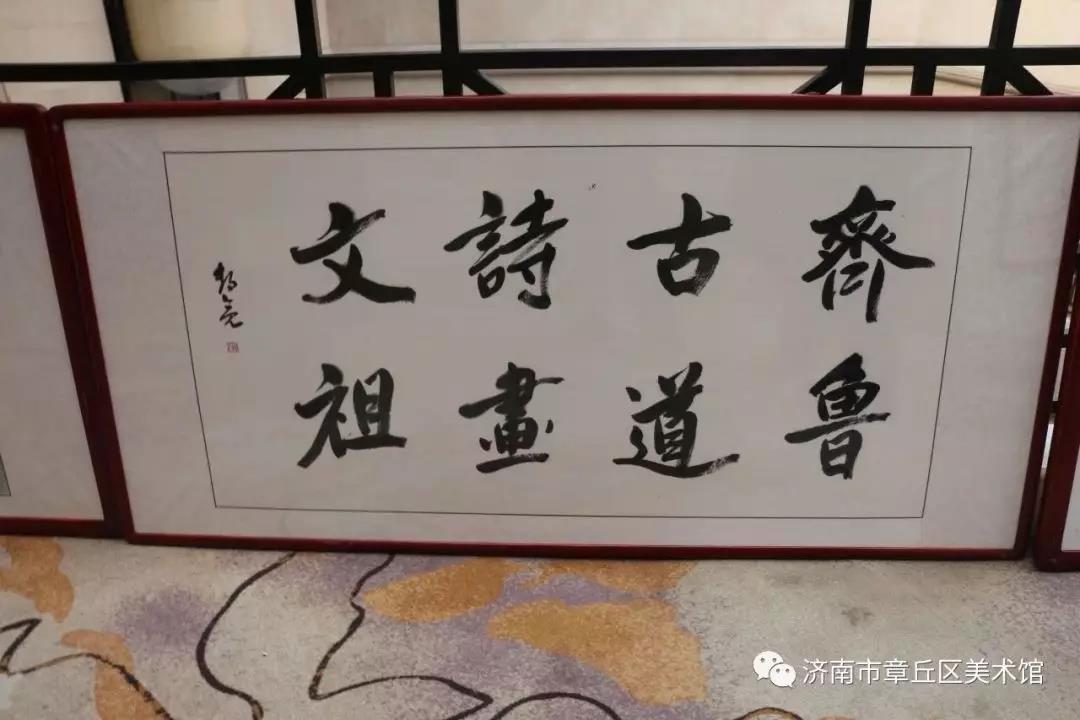 齊魯
古道
詩畫
文祖
济南市章丘区美术馆